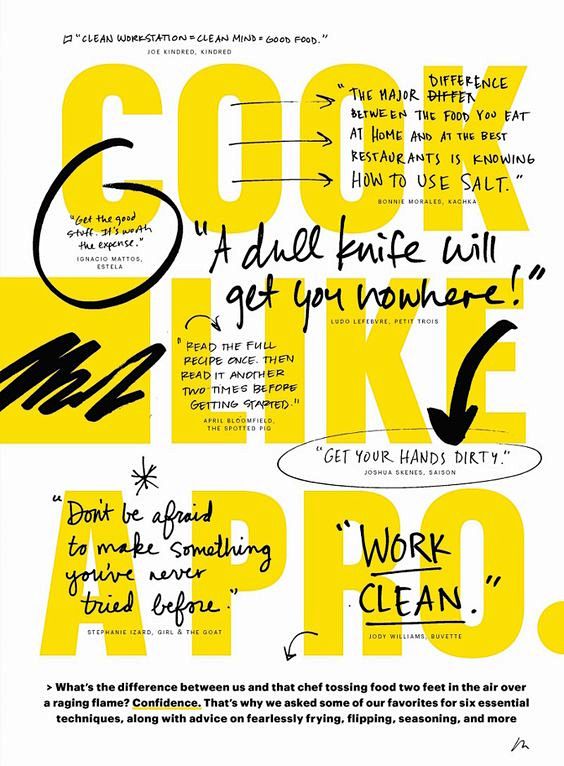 "CLEAN WORKSTATION = CLEAN MIND = GOOD FOOD."
JOE KINDRED, KINDRED
COOK
"THE MAJOR DIFFERENCE DIFFER
BETWEEN THE FOOD YOU EAT
AT HOME AND AT THE BEST
RESTAURANTS IS KNOWING
HOW TO USE SALT."
BONNIE MORALES, KACHKA
"Get the good
stuff. It's worth
the expense."
IGNACIO MATTOS,
ESTELA
"A dull knife will
get you nowhere!"
LUDO LEFEBVRE, PETIT TROIS
LIKE
"READ THE FULL
RECIPE ONCE. THEN
READ IT ANOTHER
TWO TIMES BEFORE
GETTING STARTED."
APRIL BLOOMFIELD,
THE SPOTTED PIG
"GET YOUR HANDS DIRTY."
JOSHUA SKENES, SAISON
A PRO.
"Don't be afraid
to make something
you've never
tried before."
STEPHANIE IZARD, GIRL & THE GOAT
"WORK
CLEAN."
JODY WILLIAMS, BUVETTE
> What's the difference between us and that chef tossing food two feet in the air over
a raging flame? Confidence. That's why we asked some of our favorites for six essential
techniques, along with advice on fearlessly frying, flipping, seasoning, and more